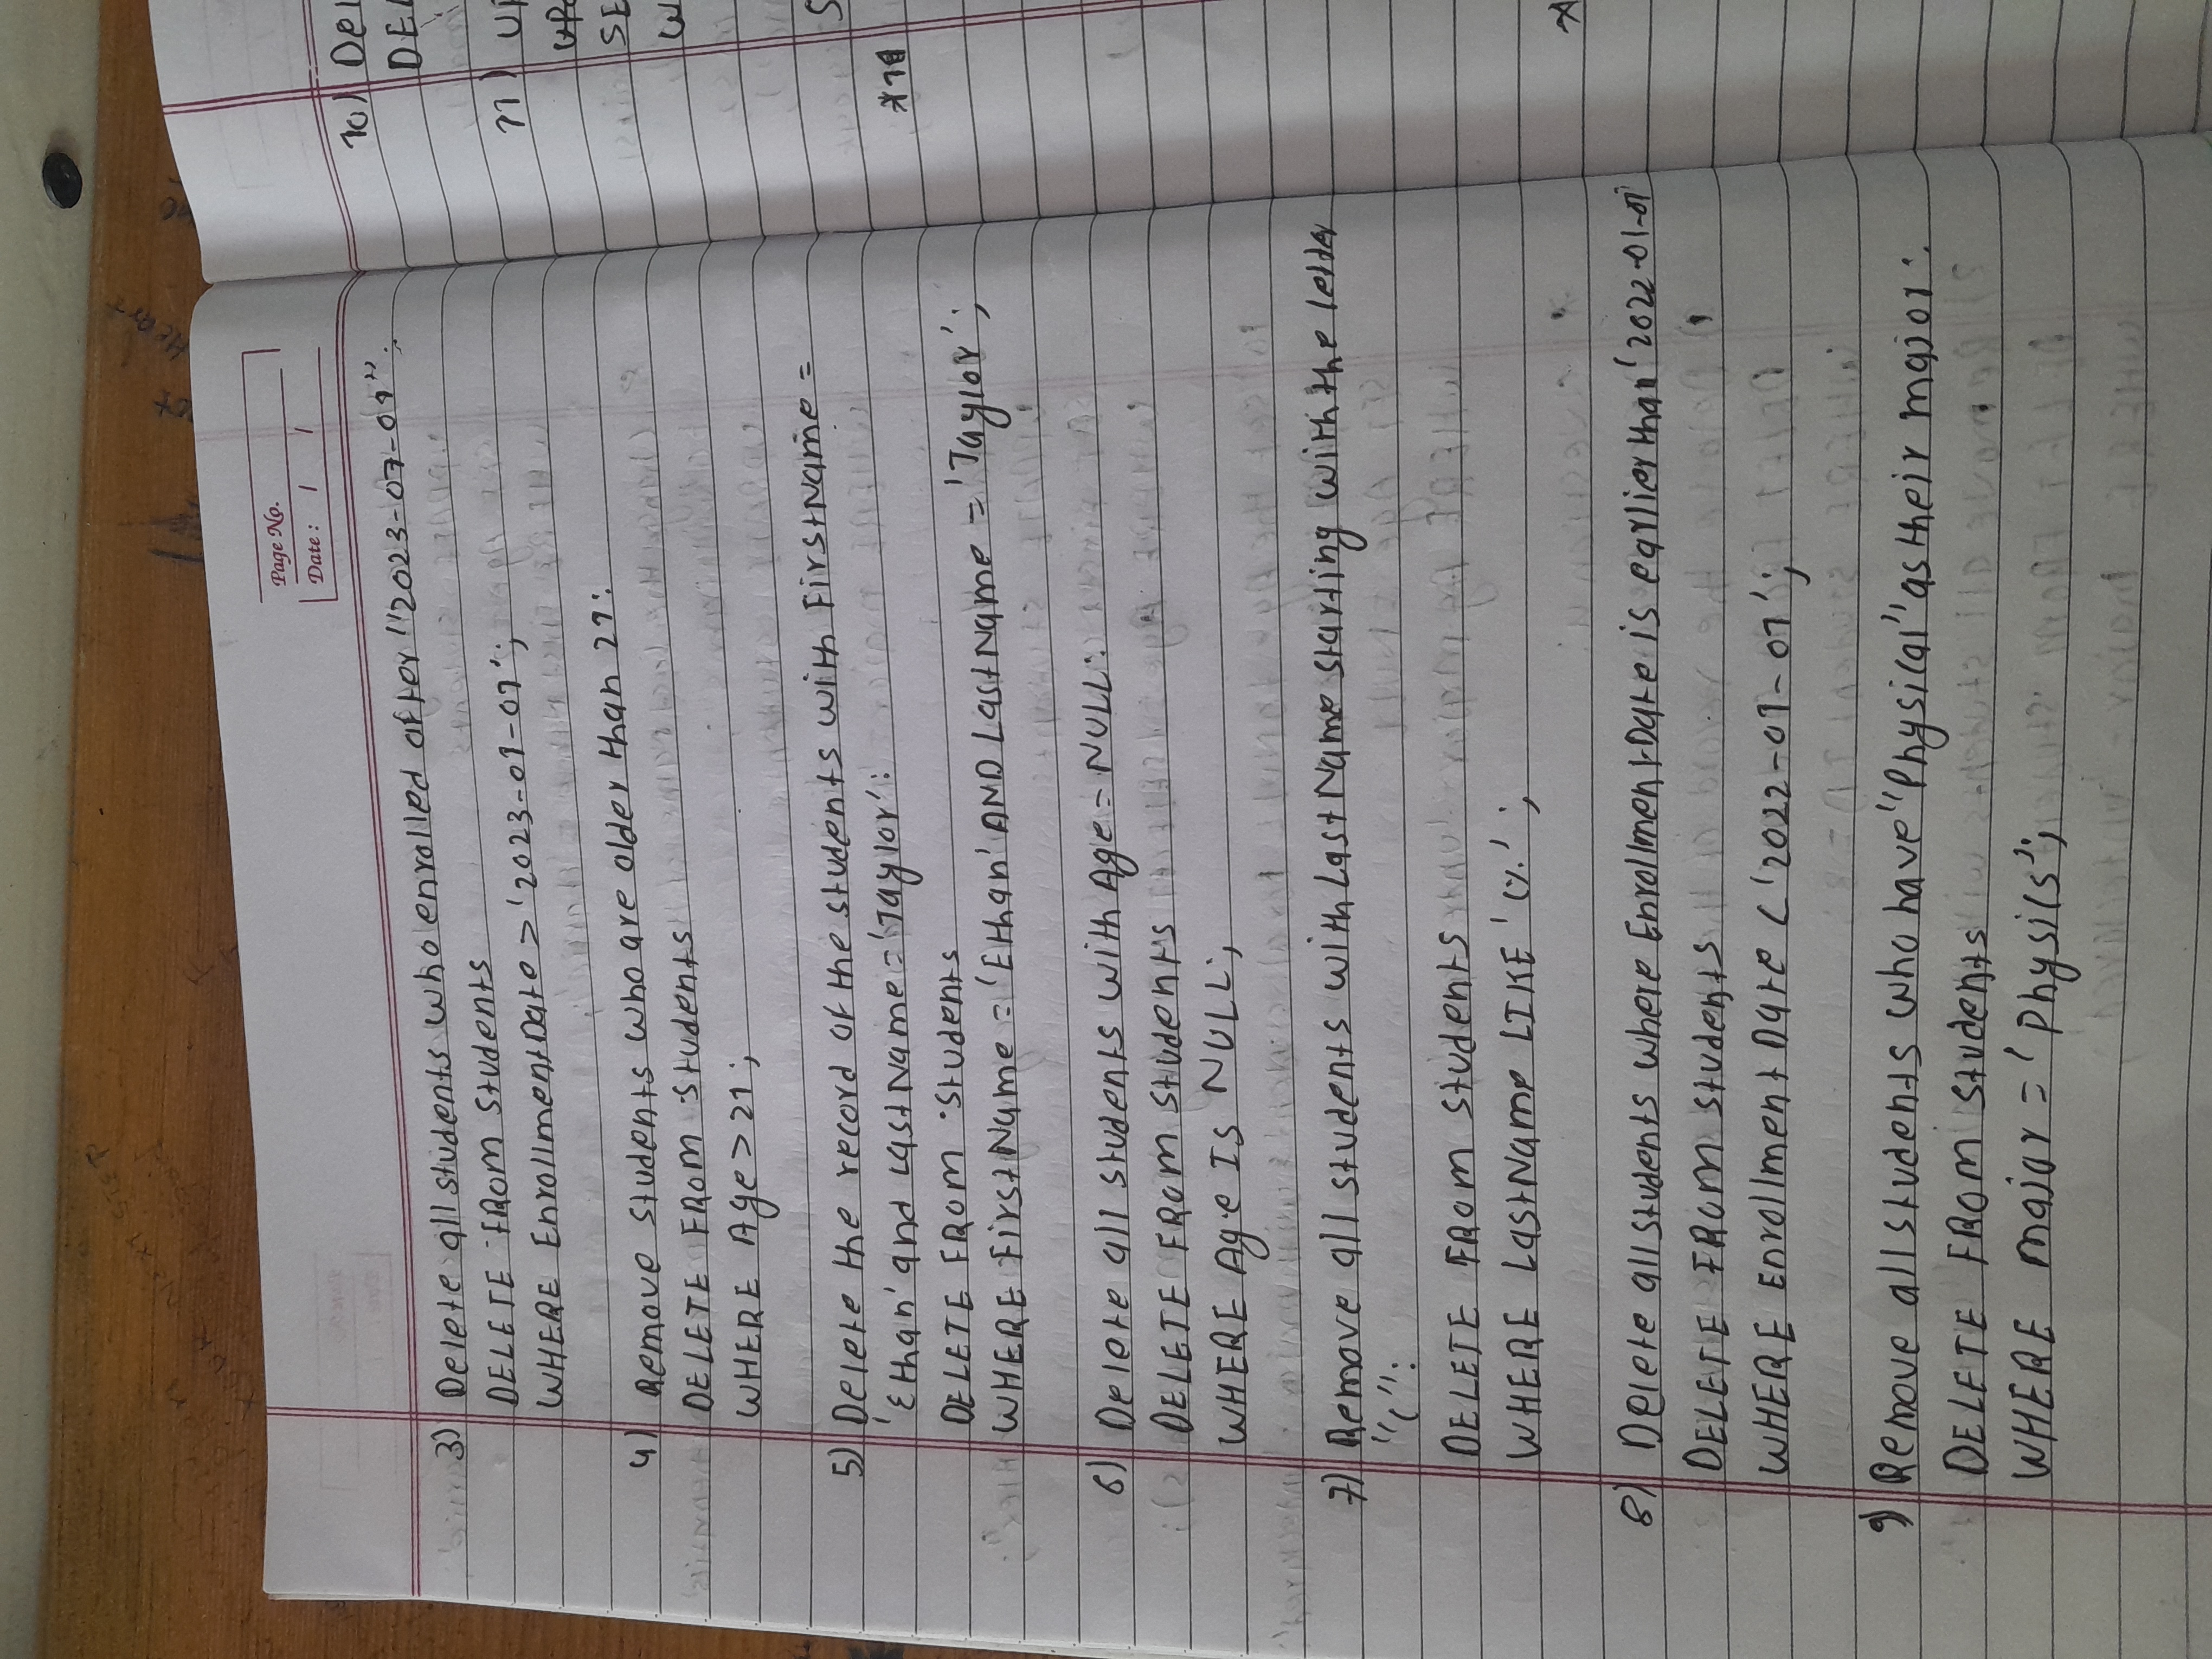 Page No.
Date : / /
3) Delete all students who enrolled after "2023-07-01":
DELETE FROM Students
WHERE EnrollmentDate > '2023-01-01';
4) Remove students who are older than 21:
DELETE FROM Students
WHERE Age > 21;
5) Delete the record of the students with FirstName =
'Ethan' and LastName = 'Taylor':
DELETE FROM Students
WHERE FirstName = 'Ethan' AND LastName = 'Taylor';
6) Delete all students with Age = NULL:
DELETE FROM Students
WHERE Age IS NULL;
7) Remove all students with LastName starting with the letter
"C":
DELETE FROM Students
WHERE LastName LIKE 'C%';
8) Delete all students where EnrollmentDate is earlier than '2022-01-01'
DELETE FROM Students
WHERE EnrollmentDate < '2022-01-01';
9) Remove all students who have "Physical" as their major:
DELETE FROM Students
WHERE major = 'Physics';
10) Del
DEL
11) UP
SE
W
S